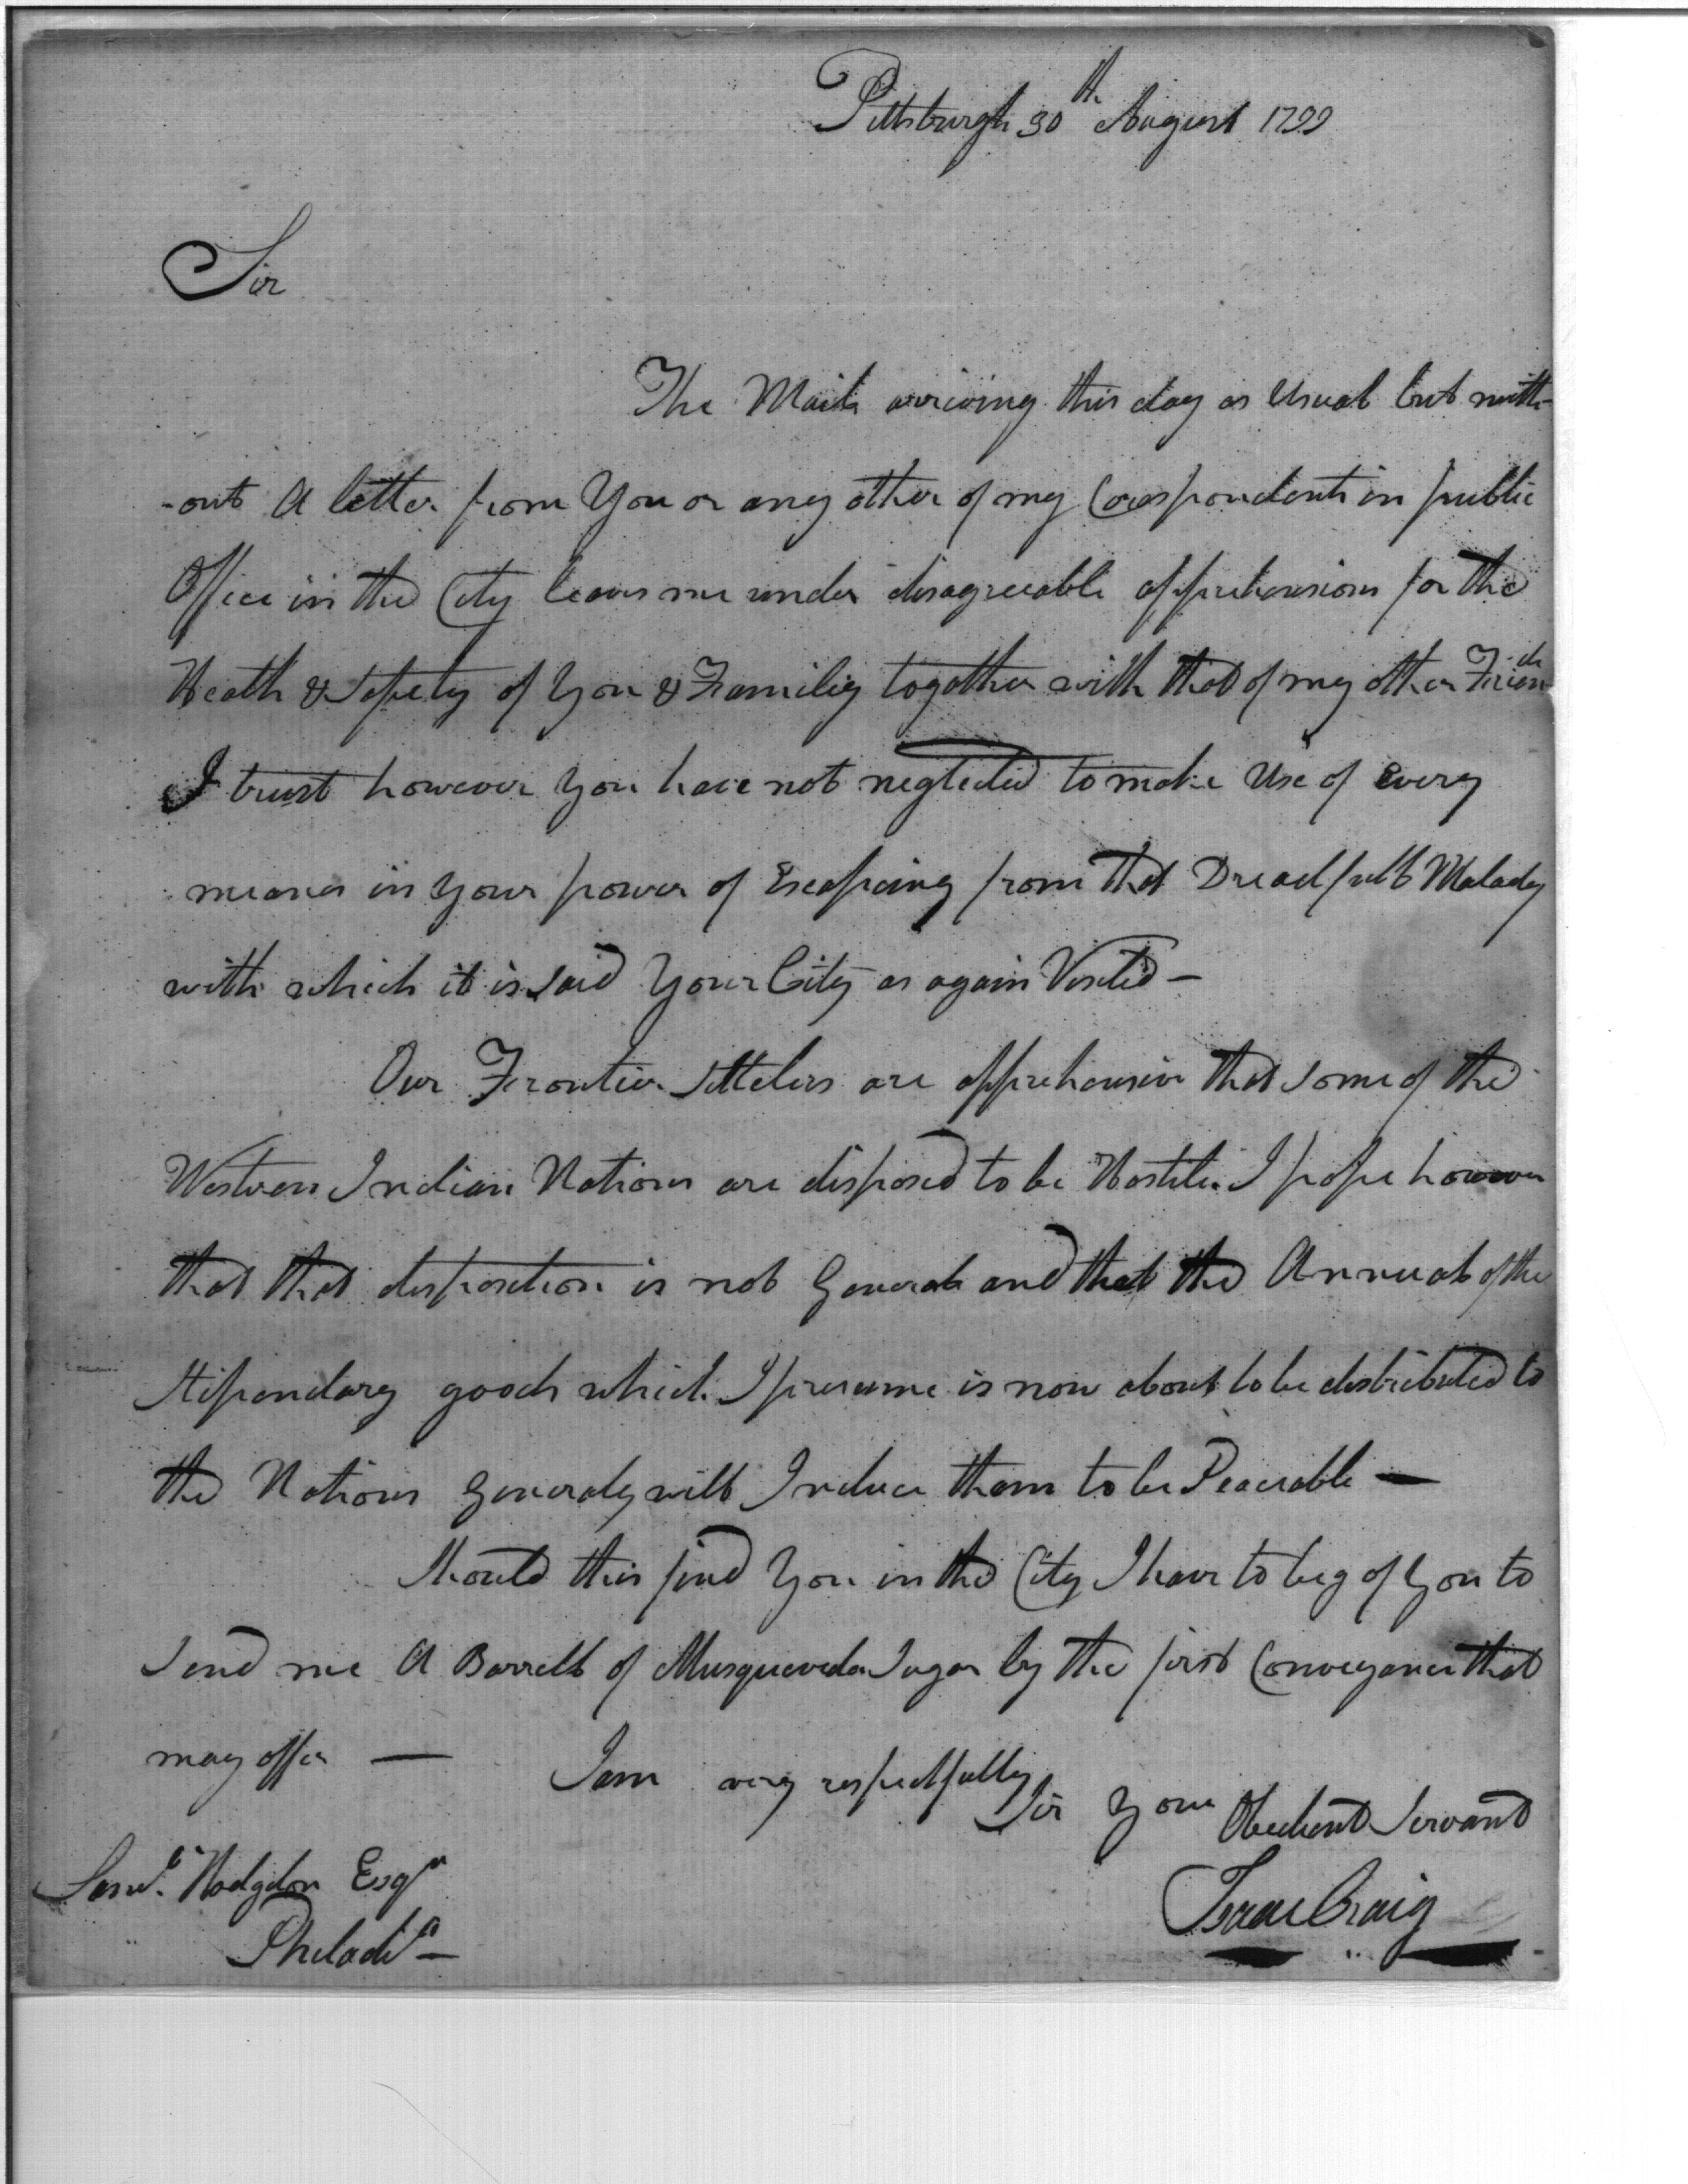 Pittsburgh 30th August 1799
Sir
The Mail arriving this day as Usual but with-
-out A letter from You or any other of my Corespondents in public
Office in the City leaves me under disagreeable apprehensions for the
Health & Safety of You & Family together with that of my other Friends
I trust however You have not neglected to make Use of every
means in Your power of Escapeing from that Dreadfull Malady
with which it is said Your City is again Visited —
Our Frontier Settelers are apprehensive that some of the
Western Indian Nations are disposed to be Hostile. I hope however
that that disposition is not General and that the Annual of the
Stipendary goods which I presume is now about to be distributed to
the Nations Generaly will Induce them to be Peaceable —
Should this find You in the City I have to beg of You to
Send me A Barrell of Musquevada Sugar by the first Conveyance that
may offer — I am very respectfully
Sir Your Obedient Servant
Isaac Craig
Saml. Hodgdon Esqr
Philadla —